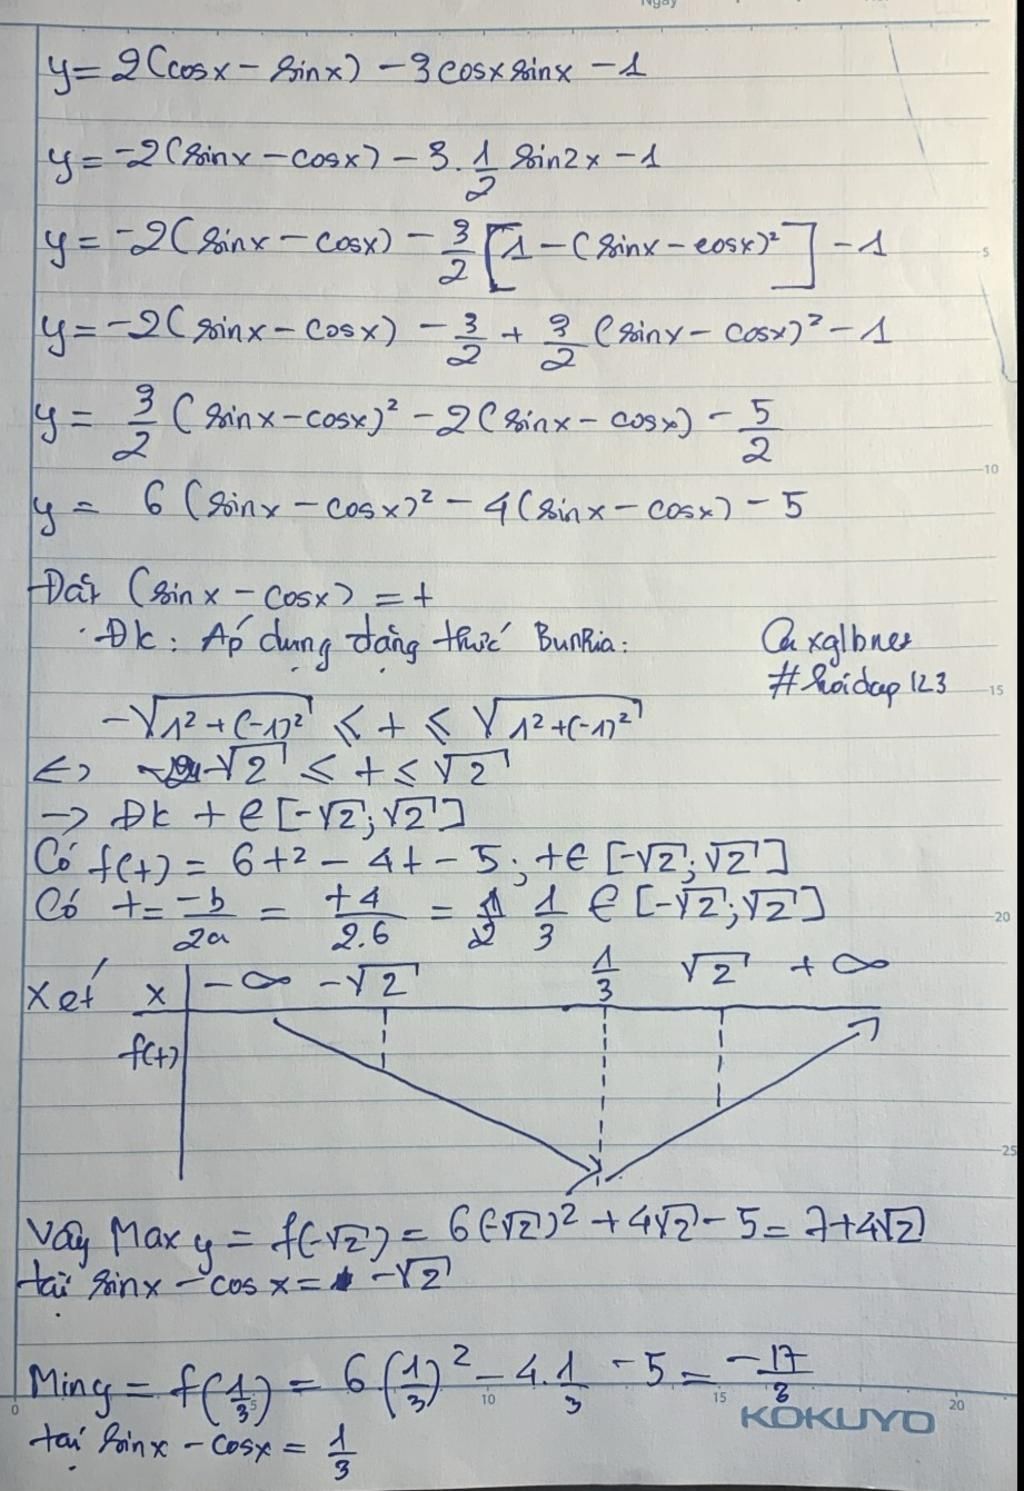 y = 2(cosx - sinx) - 3cosxsinx - 1
y = -2(sinx - cosx) - 3.1/2 sin2x - 1
y = -2(sinx - cosx) - 3/2 [1 - (sinx - cosx)²] - 1
y = -2(sinx - cosx) - 3/2 + 3/2 (sinx - cosx)² - 1
y = 3/2 (sinx - cosx)² - 2(sinx - cosx) - 5/2
y = 6(sinx - cosx)² - 4(sinx - cosx) - 5
Đặt (sinx - cosx) = t
· Đk: Áp dụng đẳng thức BunRia:
#hoidap123
-√1²+(-1)² ≤ t ≤ √1²+(-1)²
<=> -√2 ≤ t ≤ √2
-> Đk t ∈ [-√2; √2]
Có f(t) = 6t² - 4t - 5; t ∈ [-√2; √2]
Có t = -b/2a = +4/2.6 = 1/3 ∈ [-√2; √2]
Xét x -∞ -√2 1/3 √2 +∞
f(t)
Vậy Max y = f(-√2) = 6(-√2)² + 4√2 - 5 = 7+4√2
tại sinx - cosx = -√2
Min y = f(1/3) = 6.(1/3)² - 4.1/3 - 5 = -17/3
tại sinx - cosx = 1/3
KOKUYO